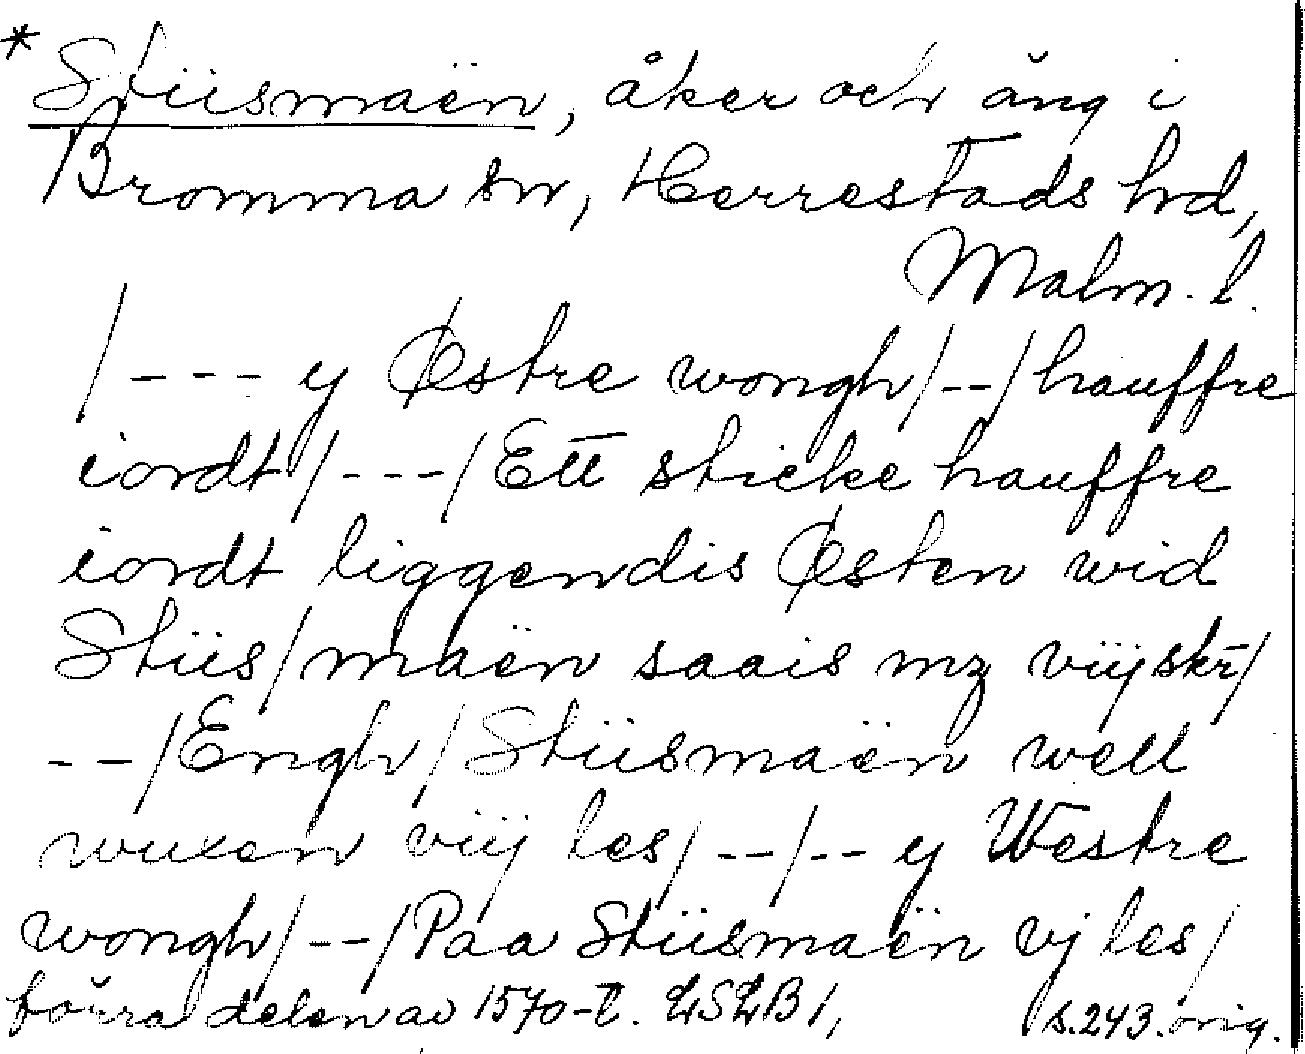 * Stiismaën, åker och äng i
Bromma sn, Herrestads hd,
Malm. l.
/--- y Østre wongh/--/hauffre
iordt/---/Ett sticke hauffre
iordt liggendis Østen wid
Stiis/maën saais mz viij skr/
--/Engh/Stiismaën well
wuxen viij les/--/-- y Westre
wongh/--/Paa Stiismaën vj les/
förra delen av 1570-t. LSLB 1, s. 243. orig.